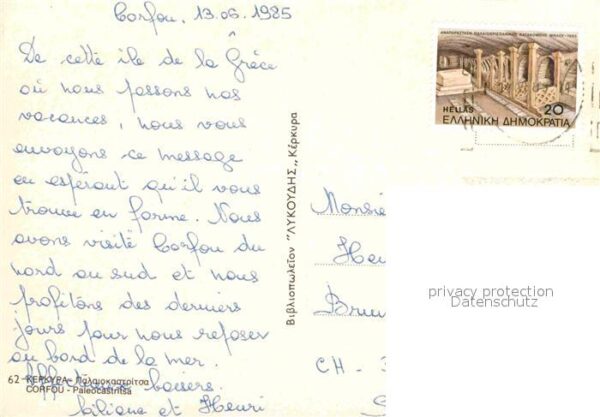 Corfou, 13.06.1985
De cette île de la Grèce
où nous passons nos
vacances, nous vous
envoyons ce message
en espérant qu'il vous
trouve en forme. Nous
avons visité Corfou du
nord au sud et nous
profitons des derniers
jours pour nous reposer
au bord de la mer.
Affectueux baisers.
Liliane et Henri
62 ΚΕΡΚΥΡΑ - Παλαιοκαστρίτσα
CORFOU - Paleocastritsa
Βιβλιοπωλεῖον "ΛΥΚΟΥΔΗΣ,, Κέρκυρα
HELLAS 20
ΕΛΛΗΝΙΚΗ ΔΗΜΟΚΡΑΤΙΑ
Monsie
Hen
Brun
CH -
privacy protection
Datenschutz